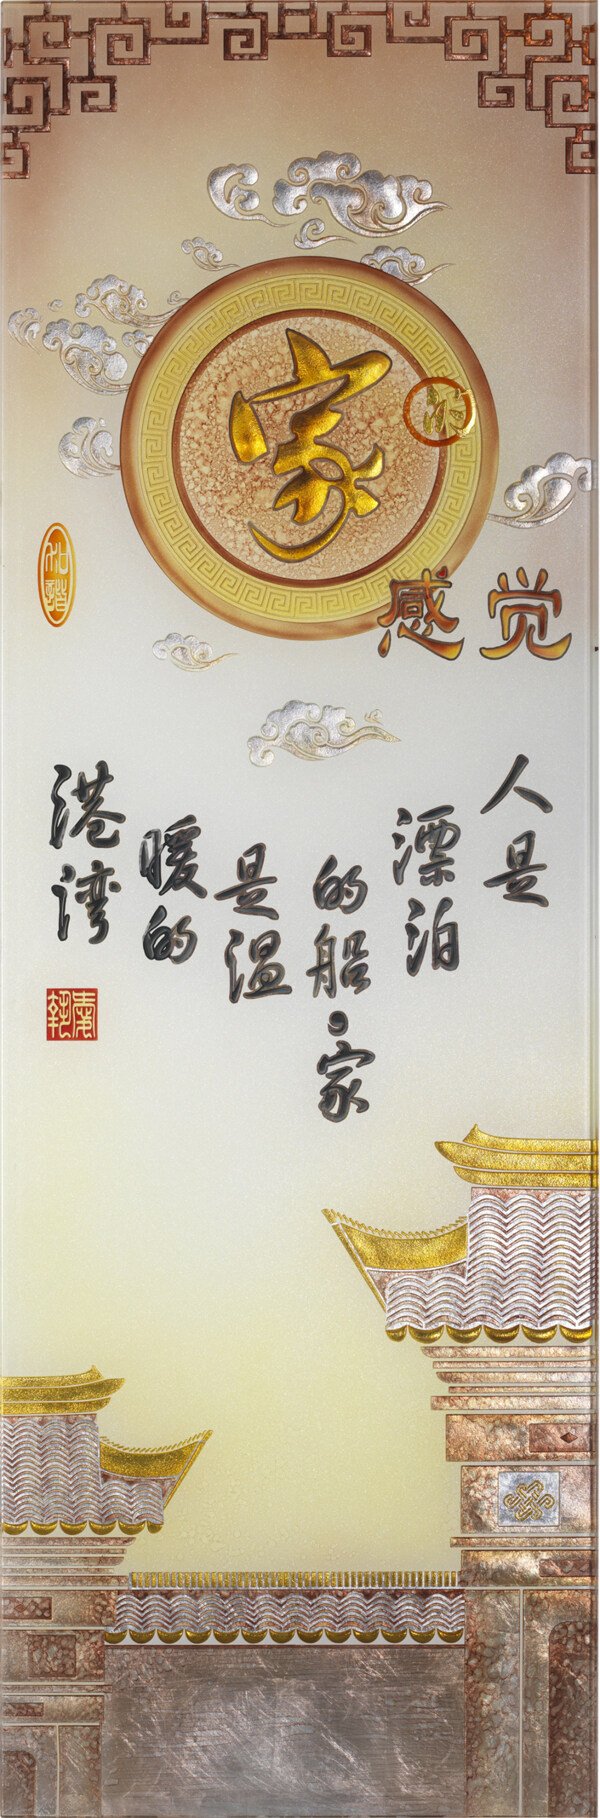 家的
感觉
人是
漂泊
的船·家
是温
暖的
港湾
和谐